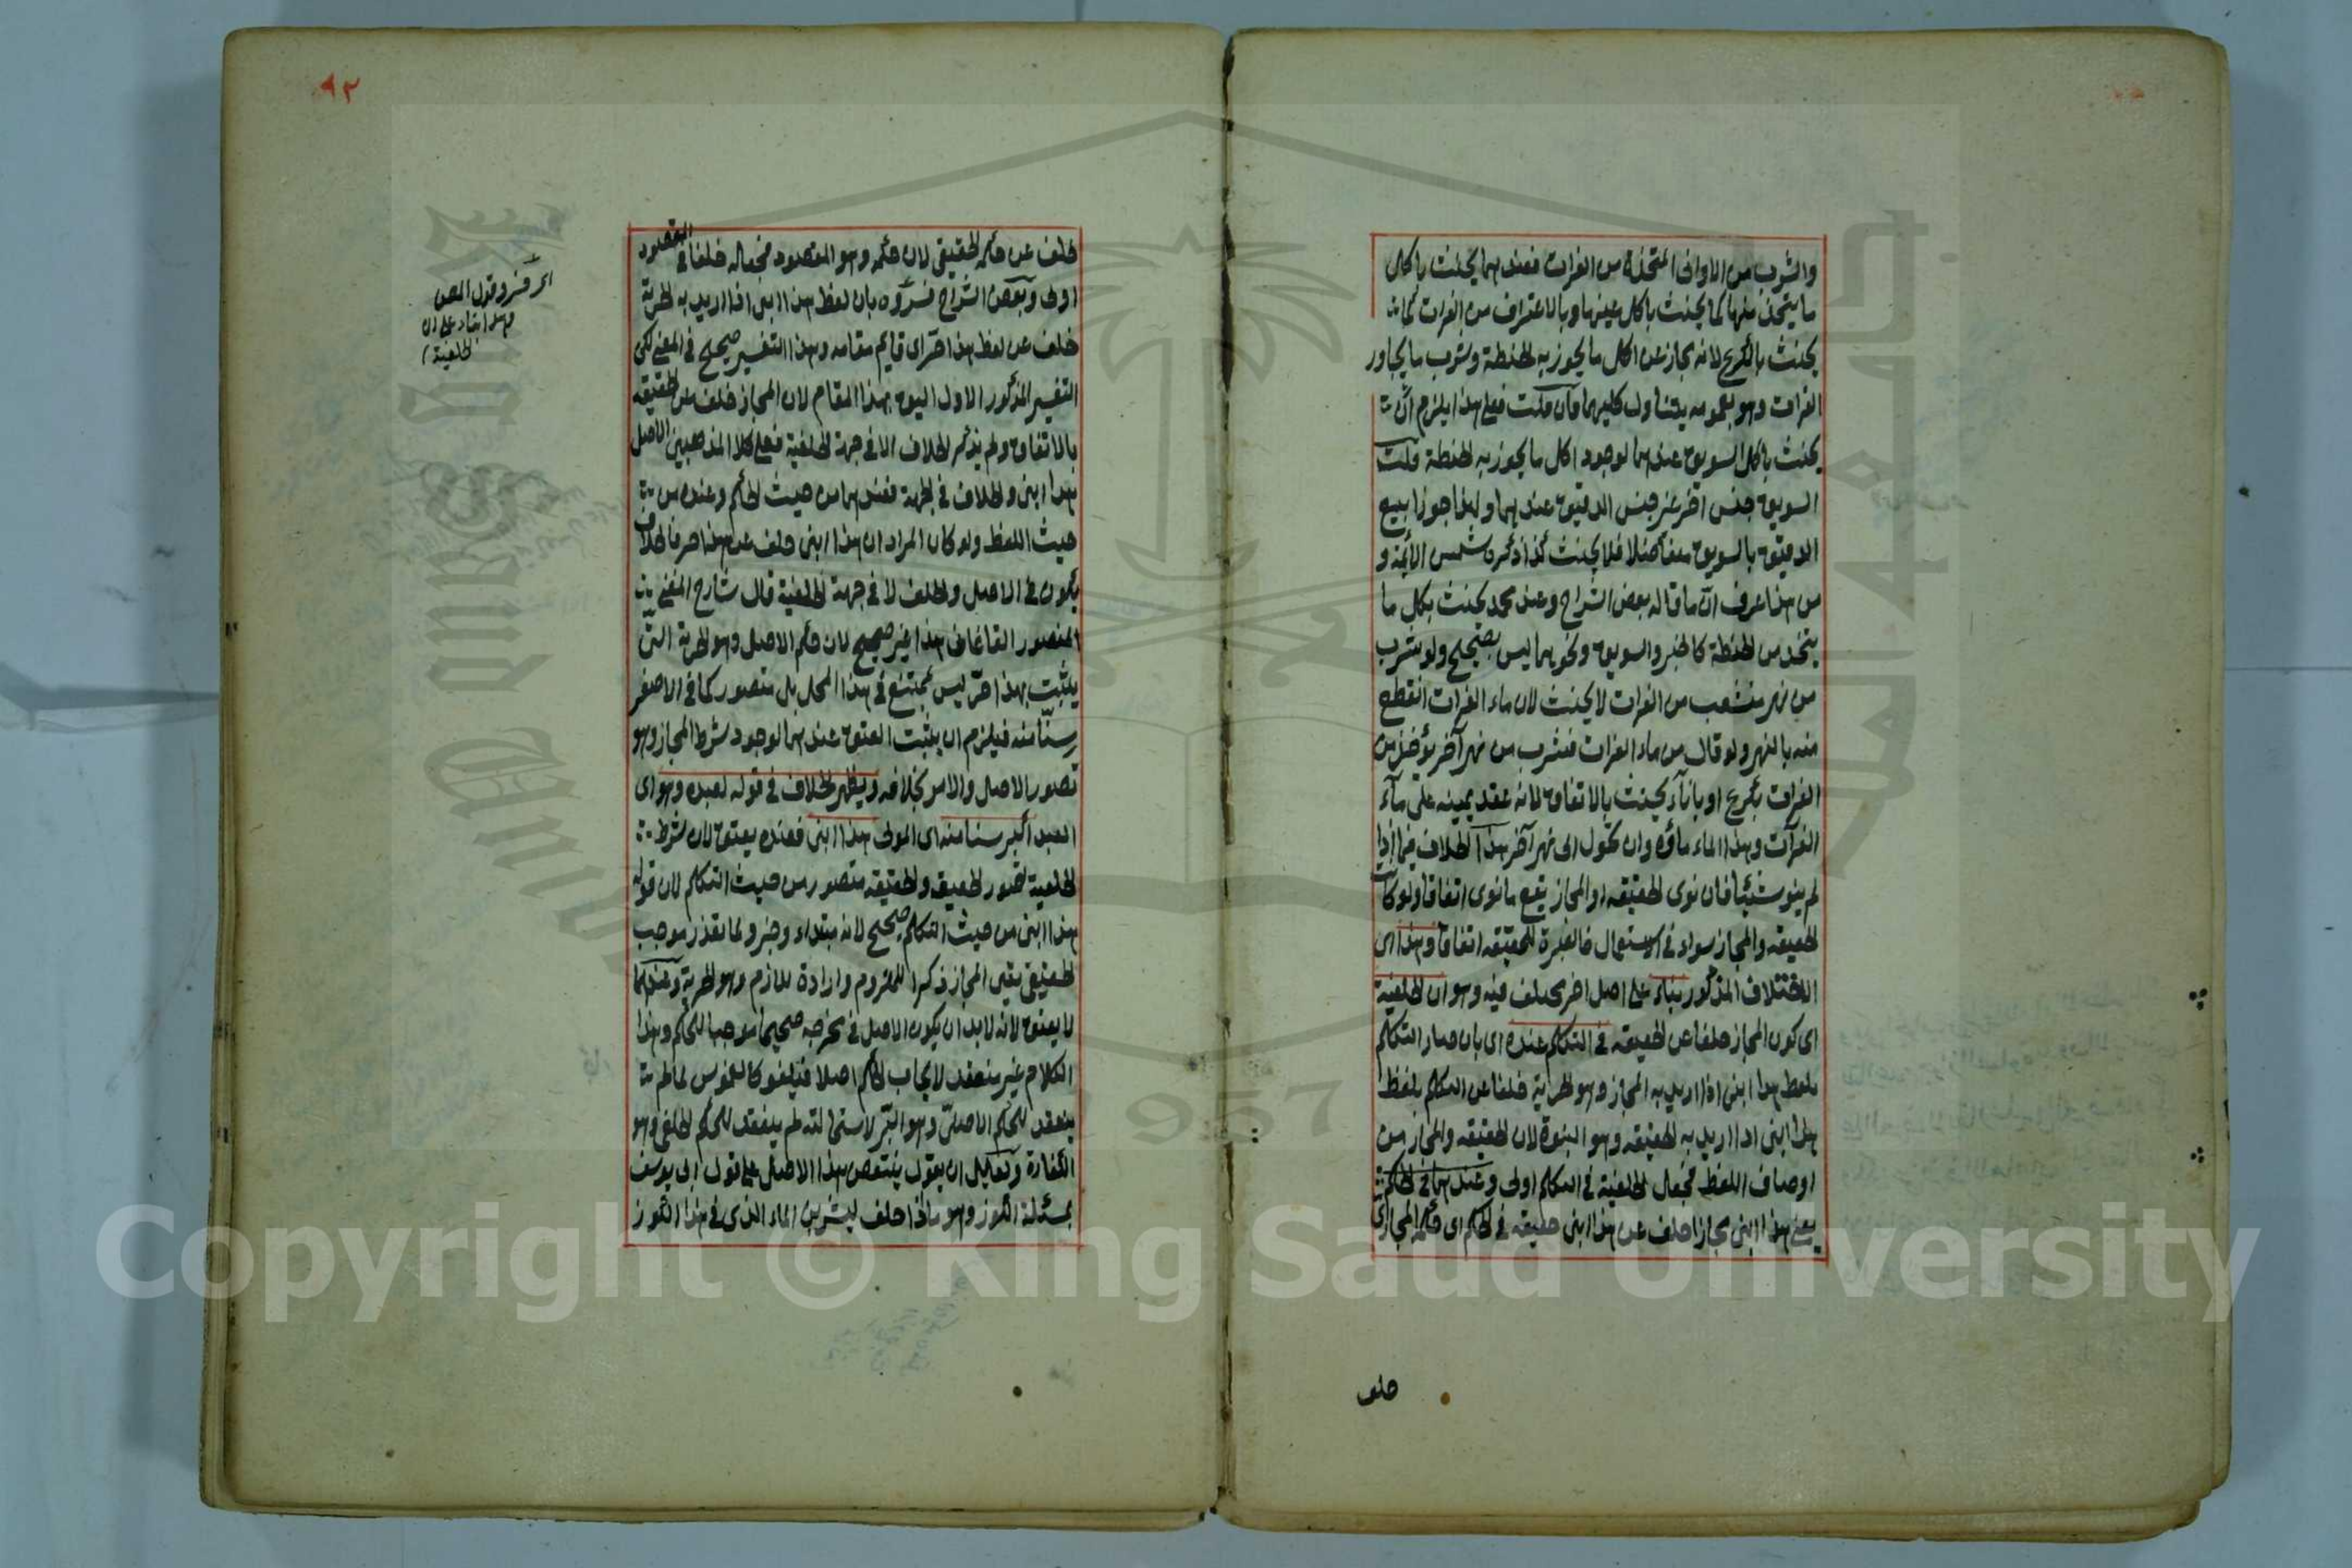 والشرب من الاوانى المتخذة من الفرات فعندهما يحنث باكل
ما يتخذ منها كما يحنث باكل عينها وبالاغتراف من الفرات كما
يحنث بالكرع لانه مجاز عن اكل ما يحوزيه الحنطة وشرب ما يجاور
الفرات وهو بعمومه يتناول كليهما فان قلت فعلى هذا يلزم ان
يحنث باكل السويق عندهما لوجود اكل ما يحوزيه الحنطة قلت
السويق جنس اخر غير جنس الدقيق عندهما ولهذا جوزا بيع
الدقيق بالسويق متفاضلا فلا يحنث كذا ذكره شمس الائمة و
من هذا عرف ان ما قاله بعض الشراح وعند محمد يحنث بكل ما
يتخذ من الحنطة كالخبز والسويق ونحوهما ليس بصحيح ولو شرب
من نهر منشعب من الفرات لا يحنث لان ماء الفرات انقطع
منه بالنهر ولو قال من ماء الفرات فشرب من نهر آخر يؤخذ من
الفرات بكرع او باناء يحنث بالاتفاق لانه عقد يمينه على ماء
الفرات وهذا الماء ماؤه وان تحول الى نهر آخر هذا الخلاف فيما اذا
لم ينو شيئا فان نوى الحقيقه او المجاز يقع ما نوى اتفاقا ولو كان
الحقيقه والمجاز سواء فى الاستعمال فالعبرة للحقيقه اتفاقا وهذا اى
الاختلاف المذكور بناء على اصل اخر مختلف فيه وهو ان الخلفية
اى كون المجاز خلفا عن الحقيقه فى التكلم عنده اى بان صار التكلم
بلفظ هذا ابنى اذا اريد به المجاز وهو الحرية خلفا عن التكلم بلفظ
هذا ابنى اذا اريد به الحقيقه وهو البنوة لان الحقيقه والمجاز من
اوصاف اللفظ فجعل الخلفية فى التكلم اولى وعندهما فى الحكم
يعنى هذا ابنى مجازا خلف عن هذا ابنى حقيقه فى الحكم اى حكمه المجازى
خلف
٩٢
خلف عن حكمه الحقيقى لان حكمه وهو المقصود فجعاله خلفا فى المقصود
اولى وبعض الشراح فسروه بان لفظ هذا ابنى اذا اريد به الحرية
خلف عن لفظ هذا حر اى قايم مقامه وهذا التفسير صحيح فى المعنى لكن
التفسير المذكور الاول اليق بهذا المقام لان المجاز خلف عن الحقيقه
بالاتفاق ولم يذكر الخلاف الا فى جهة الخلفية فعلى كلا المذهبين الاصل
هذا ابنى والخلاف فى الجهة فعندهما من حيث الحكم وعنده من
حيث اللفظ ولو كان المراد ان هذا ابنى خلف عن هذا حر فالخلاف
يكون فى الاصل والخلف لا فى جهة الخلفية قال شارح المغنى
المنصور القاغانى هذا غير صحيح لان حكم الاصل وهو الحرية التى
يثبت بهذا حر ليس بممتنع فى هذا المحل بل متصور كما فى الاصغر
سنا منه فيلزم ان يثبت العتق عندهما لوجود شرط المجاز وهو
تصور الاصل والامر بخلافه ويظهر الخلاف فى قوله لعبده وهو اى
العبد اكبر سنا منه اى المولى هذا ابنى فعنده يعتق لان شرط
الخلفية تصور الحقيقه والحقيقه متصور من حيث التكلم لان قوله
هذا ابنى من حيث التكلم صحيح لانه مبتداء وخبر ولما تعذر موجب
الحقيقى تعين المجاز ذكرا للملزوم وارادة للازم وهو الحرية وعندهما
لا يعتق لانه لا بد ان يكون الاصل فى مخرجه صحيحا موجبا للحكم وهذا
الكلام غير منعقد لايجاب الحكم اصلا فيلغو كالغموس لما لم
ينعقد للحكم الاصلى وهو البر لاستحالته لم ينعقد للحكم الخلفى وهو
الكفارة ولقايل ان يقول ينتقض هذا الاصل على قول ابى يوسف
بمسئلة الكوز وهو ما اذا حلف ليشربن الماء الذى فى هذا الكوز
اى فسر وقول المص
وهذا بناء على ان
الخلفية
Copyright © King Saud University
1957